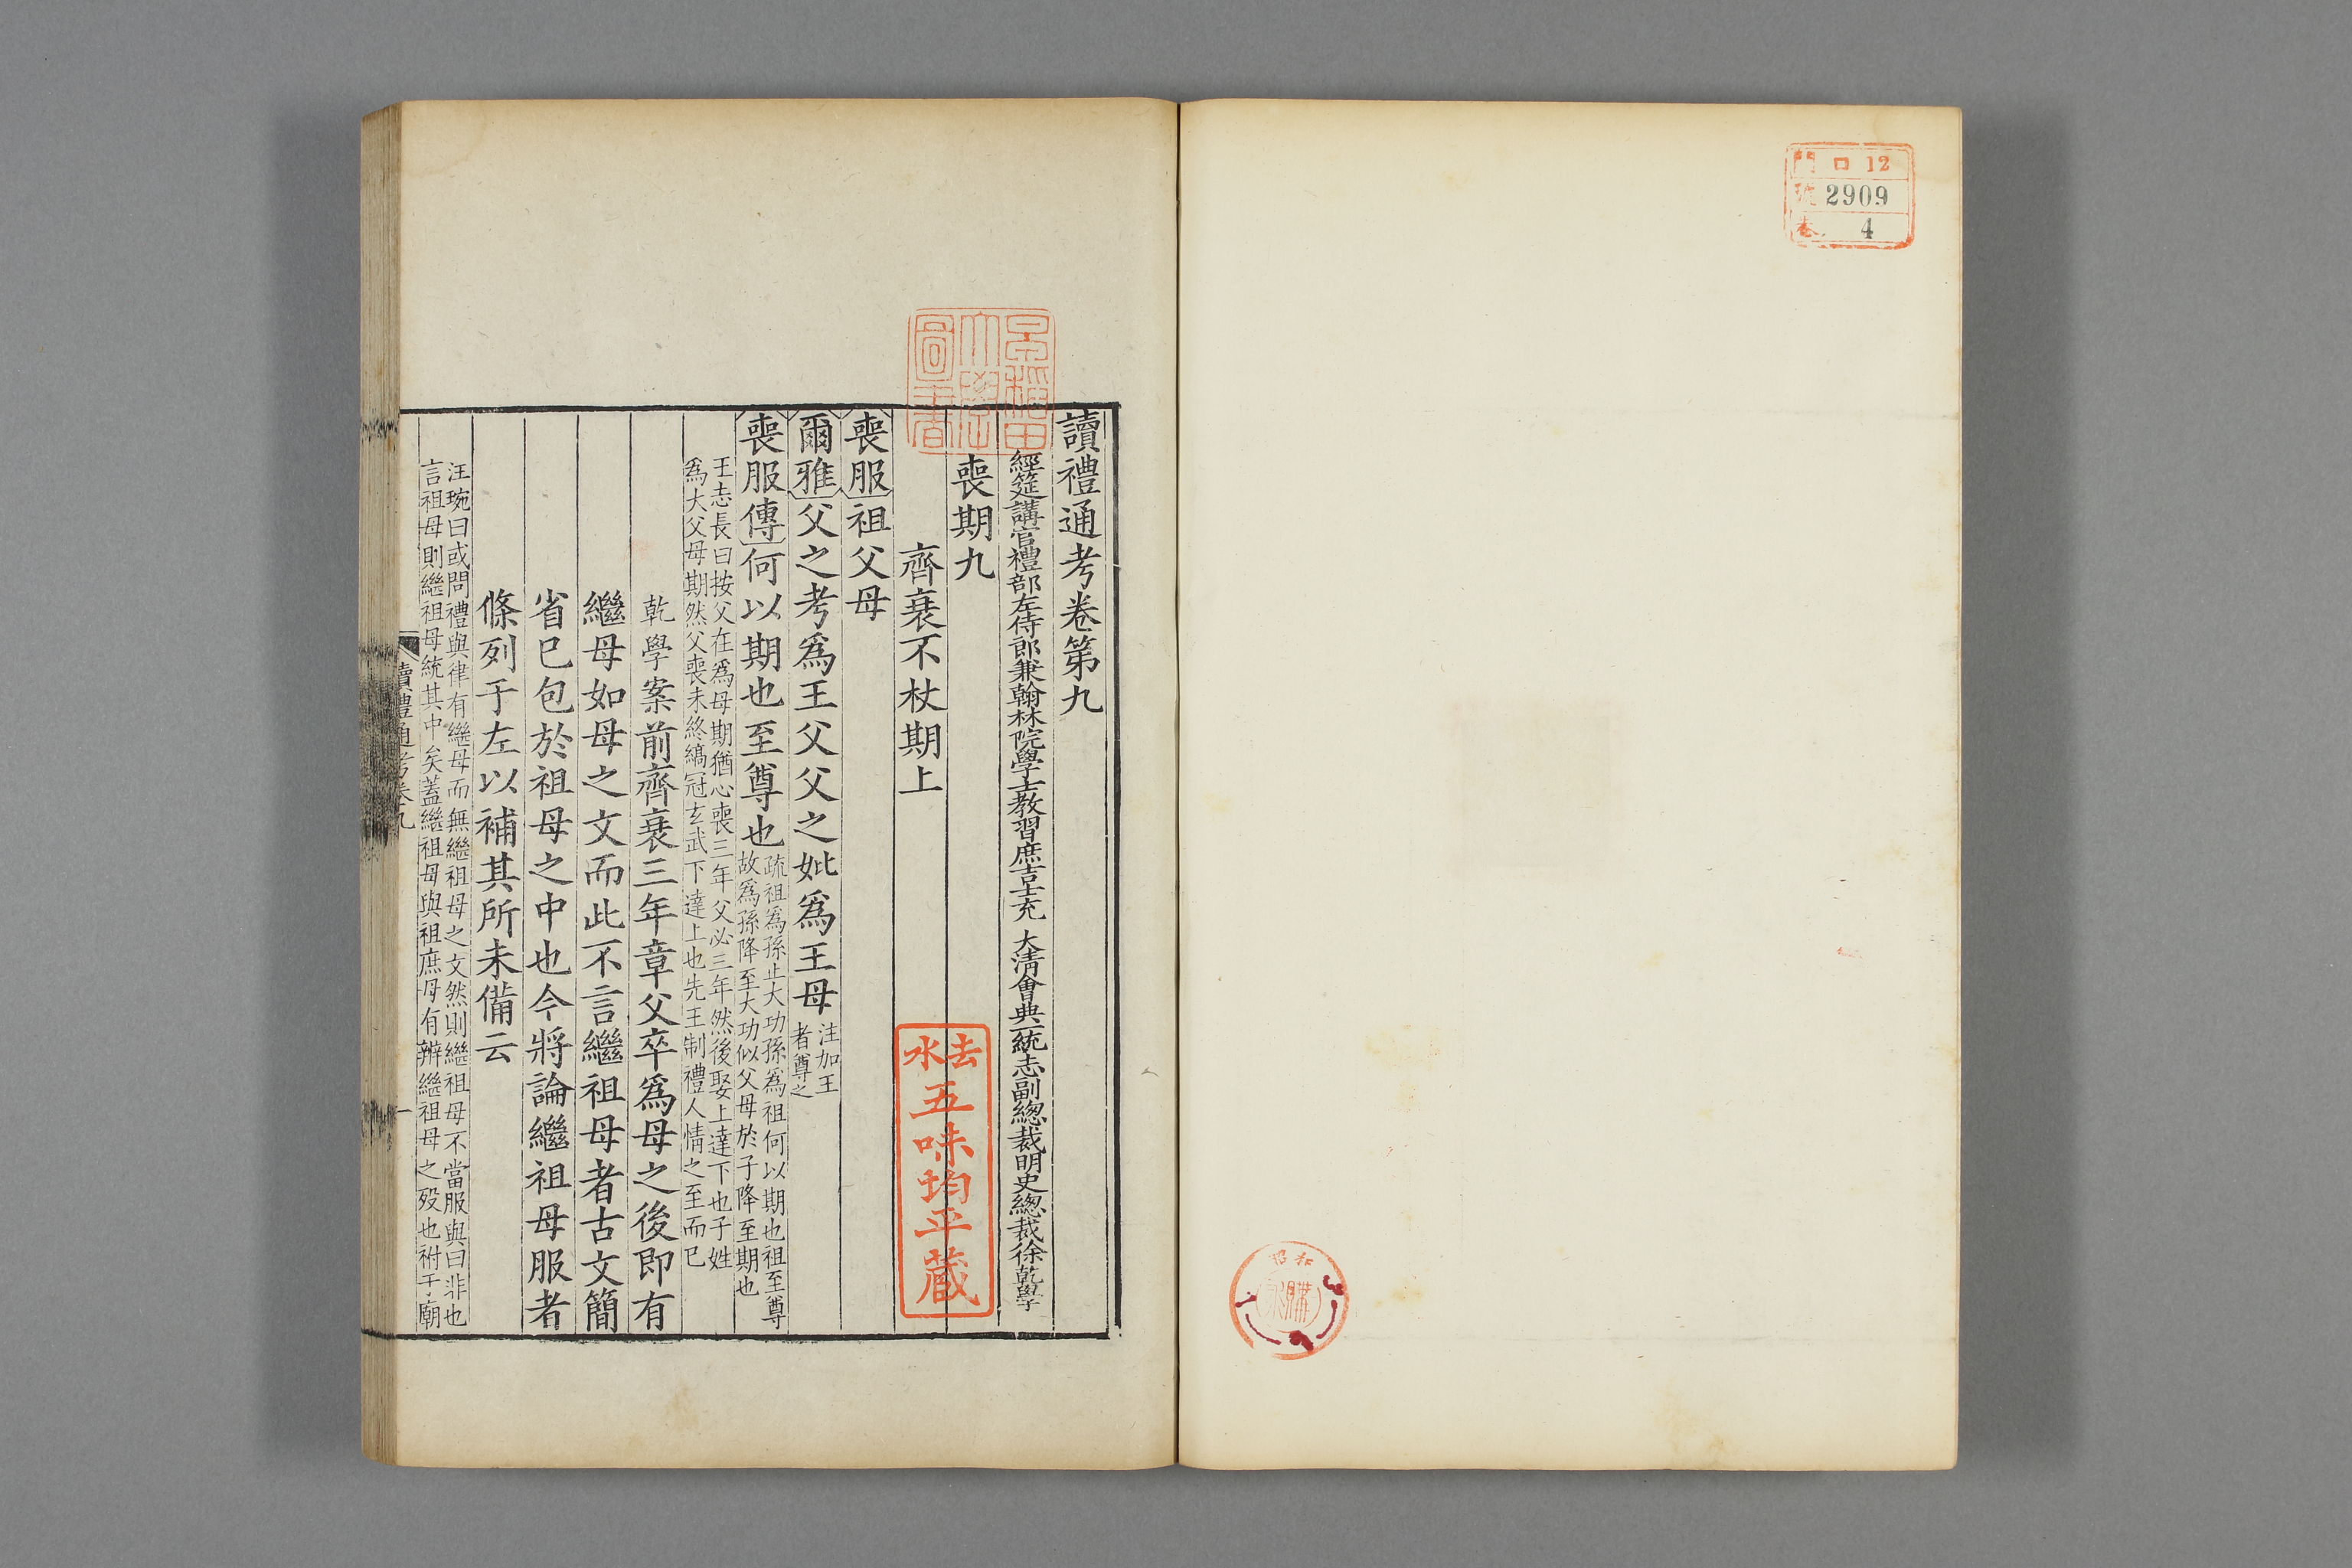 門 口 12
號 2909
卷 4
昭和
購
早稲田
大學
圖書
讀禮通考卷第九
經筵講官禮部左侍郎兼翰林院學士教習庶吉士充 大清會典一統志副總裁明史總裁徐乾學
喪期九
齊衰不杖期上
去水
五味均平蔵
喪服祖父母
爾雅父之考爲王父父之妣爲王母
注加王
者尊之
喪服傳何以期也至尊也
疏祖爲孫止大功孫爲祖何以期也祖至尊
故爲孫降至大功似父母於子降至期也
王志長曰按父在爲母期猶心喪三年父必三年然後娶上達下也子姓
爲大父母期然父喪未終縞冠玄武下達上也先王制禮人情之至而已
乾學案前齊衰三年章父卒爲母之後即有
繼母如母之文而此不言繼祖母者古文簡
省已包於祖母之中也今將論繼祖母服者
條列于左以補其所未備云
汪琬曰或問禮與律有繼母而無繼祖母之文然則繼祖母不當服與曰非也
言祖母則繼祖母統其中矣蓋繼祖母與祖庶母有辨繼祖母之歿也祔于廟
讀禮通考卷九
一